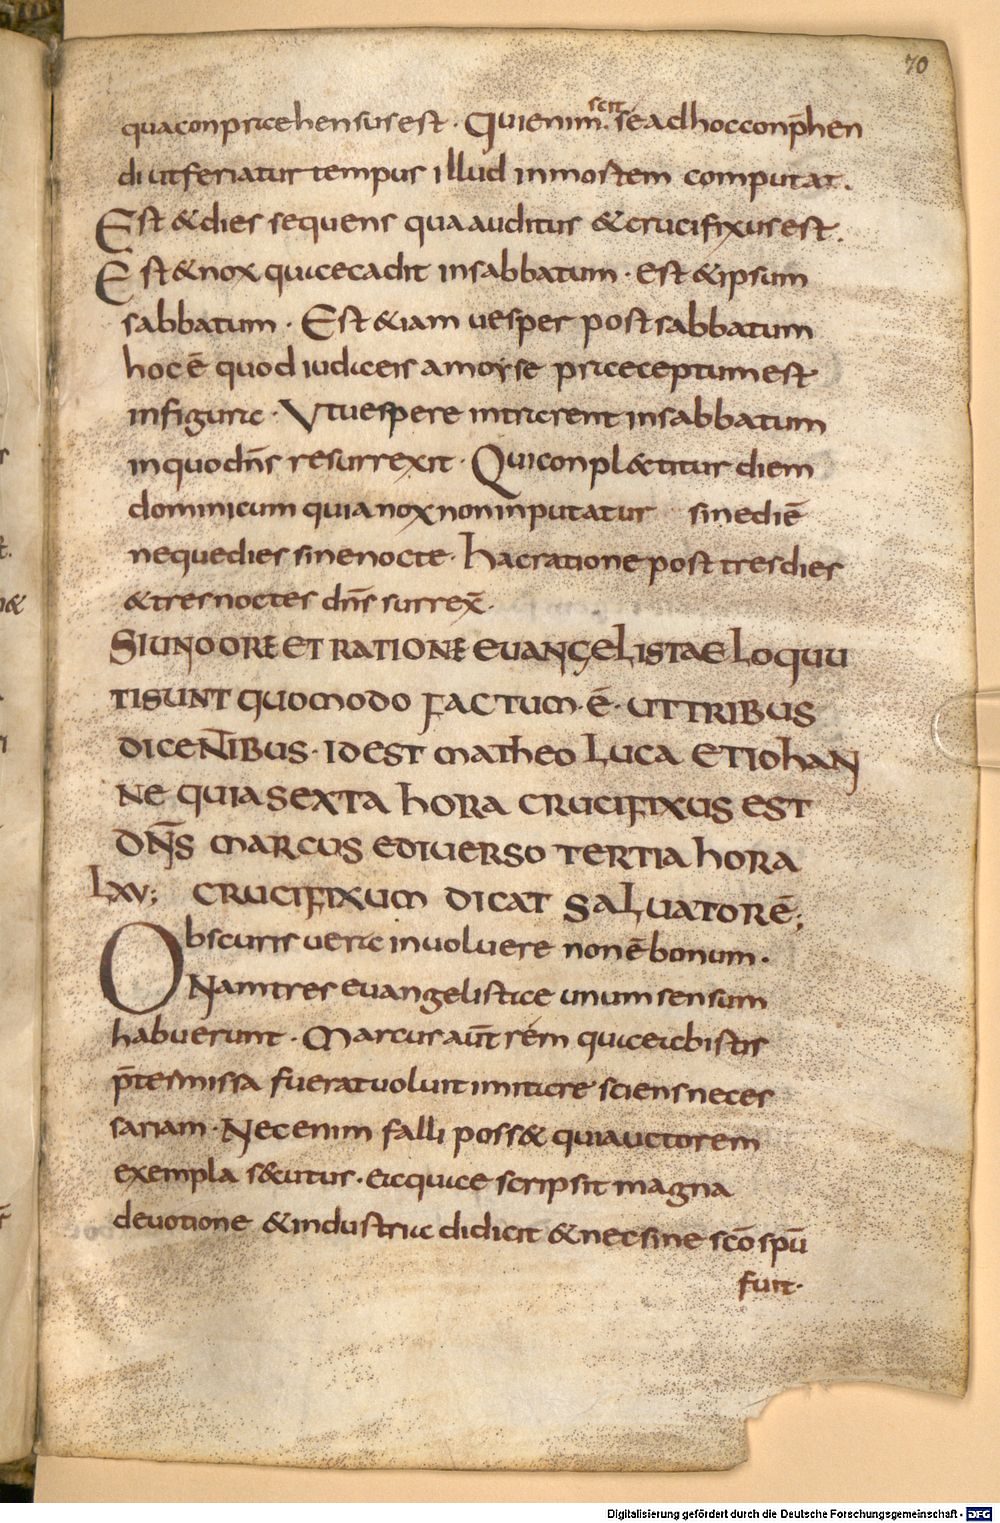 70
qua conprehensus est · Qui enim scit se ad hoc con p̄hen
di ut feriatur tempus illud in mortem computat .
Est & dies sequens qua auditus & crucifixus est .
Est & nox quae cadit in sabbatum · est & ipsum
sabbatum · Est & iam uesper post sabbatum
hoc ē quod iudaeis a moyse praeceptum est
in figura · Vt uespere intrarent in sabbatum
in quo dn̄s resurrexit · Qui conpl&titur diem
dominicum quia nox non inputatur sine diē
neque dies sine nocte · hac ratione post tres dies
& tres noctes dn̄s surrex̄ ·
SI UNO ORE ET RATIONE EUANGELISTAE LOQUU
TI SUNT QUOMODO FACTUM · Ē · UT TRIBUS
DICEN̄IBUS · ID EST MATHEO LUCA ET IOHAN
NE QUIA SEXTA HORA CRUCIFIXUS EST
DN̄S MARCUS E DIUERSO TERTIA HORA
LXV; CRUCIFIXUM DICAT SALUATORĒ;
Obscuris uera inuoluere non ē bonum .
Nam tres euangelistae unum sensum
habuerunt · Marcus aūt rem quae ab istis
p̄termissa fuerat uoluit imitare sciens neces
sariam · Nec enim falli poss& quia auctorem
exempla s&utus · ea quae scripsit magna
deuotione & industria didicit & nec sine scō spū
fuit ·
Digitalisierung gefördert durch die Deutsche Forschungsgemeinschaft - DFG